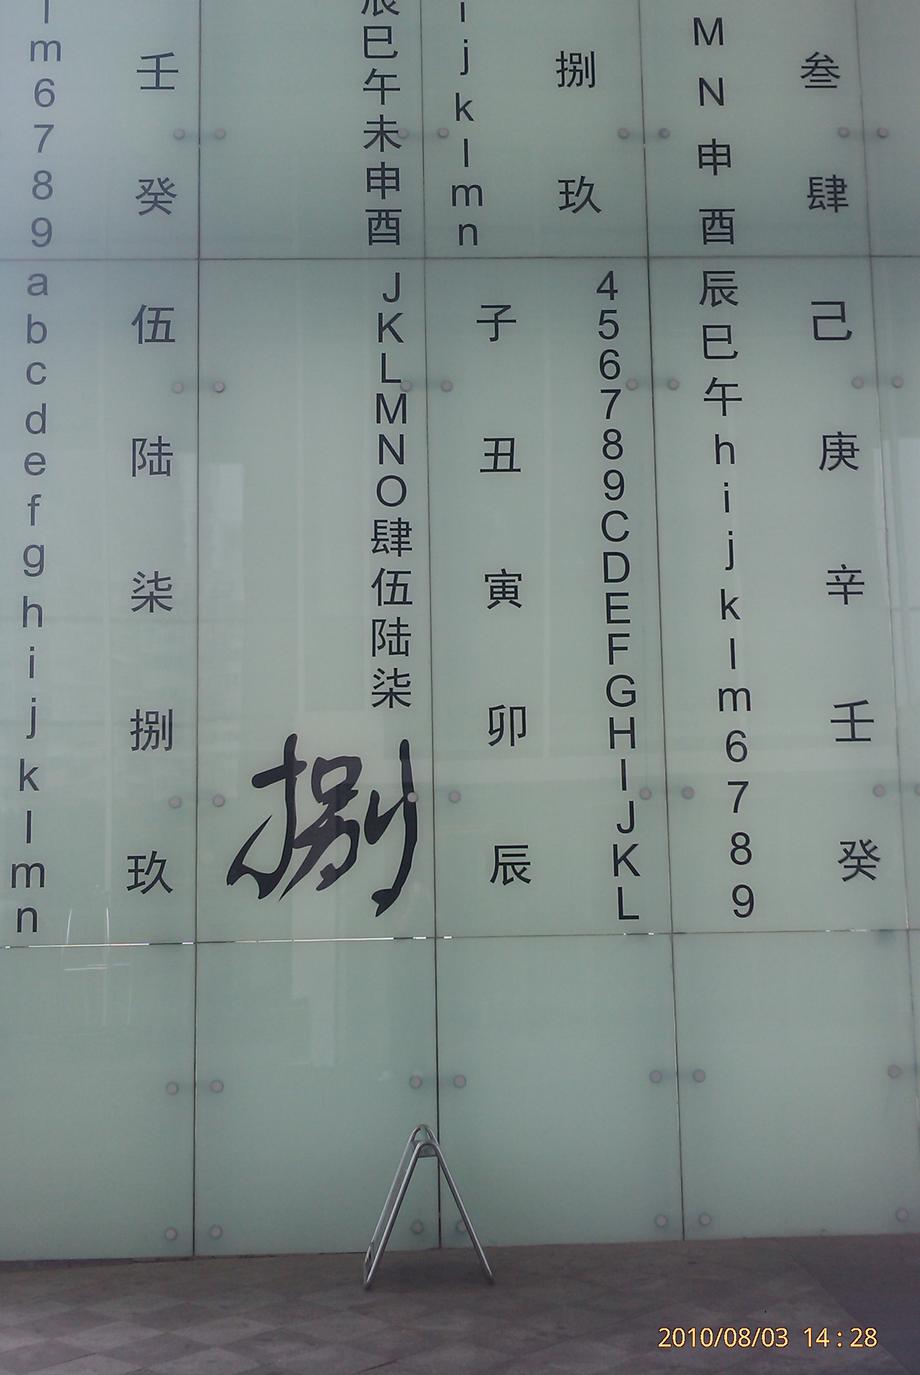 l m 6 7 8 9
壬癸
辰巳午未申酉
i j k l m n
捌玖
M N 申酉
叁肆
a b c d e f g h i j k l m n
伍陆柒捌玖
J K L M N O 肆伍陆柒
捌
子丑寅卯辰
4 5 6 7 8 9 C D E F G H I J K L
辰巳午 h i j k l m 6 7 8 9
己庚辛壬癸
2010/08/03 14:28